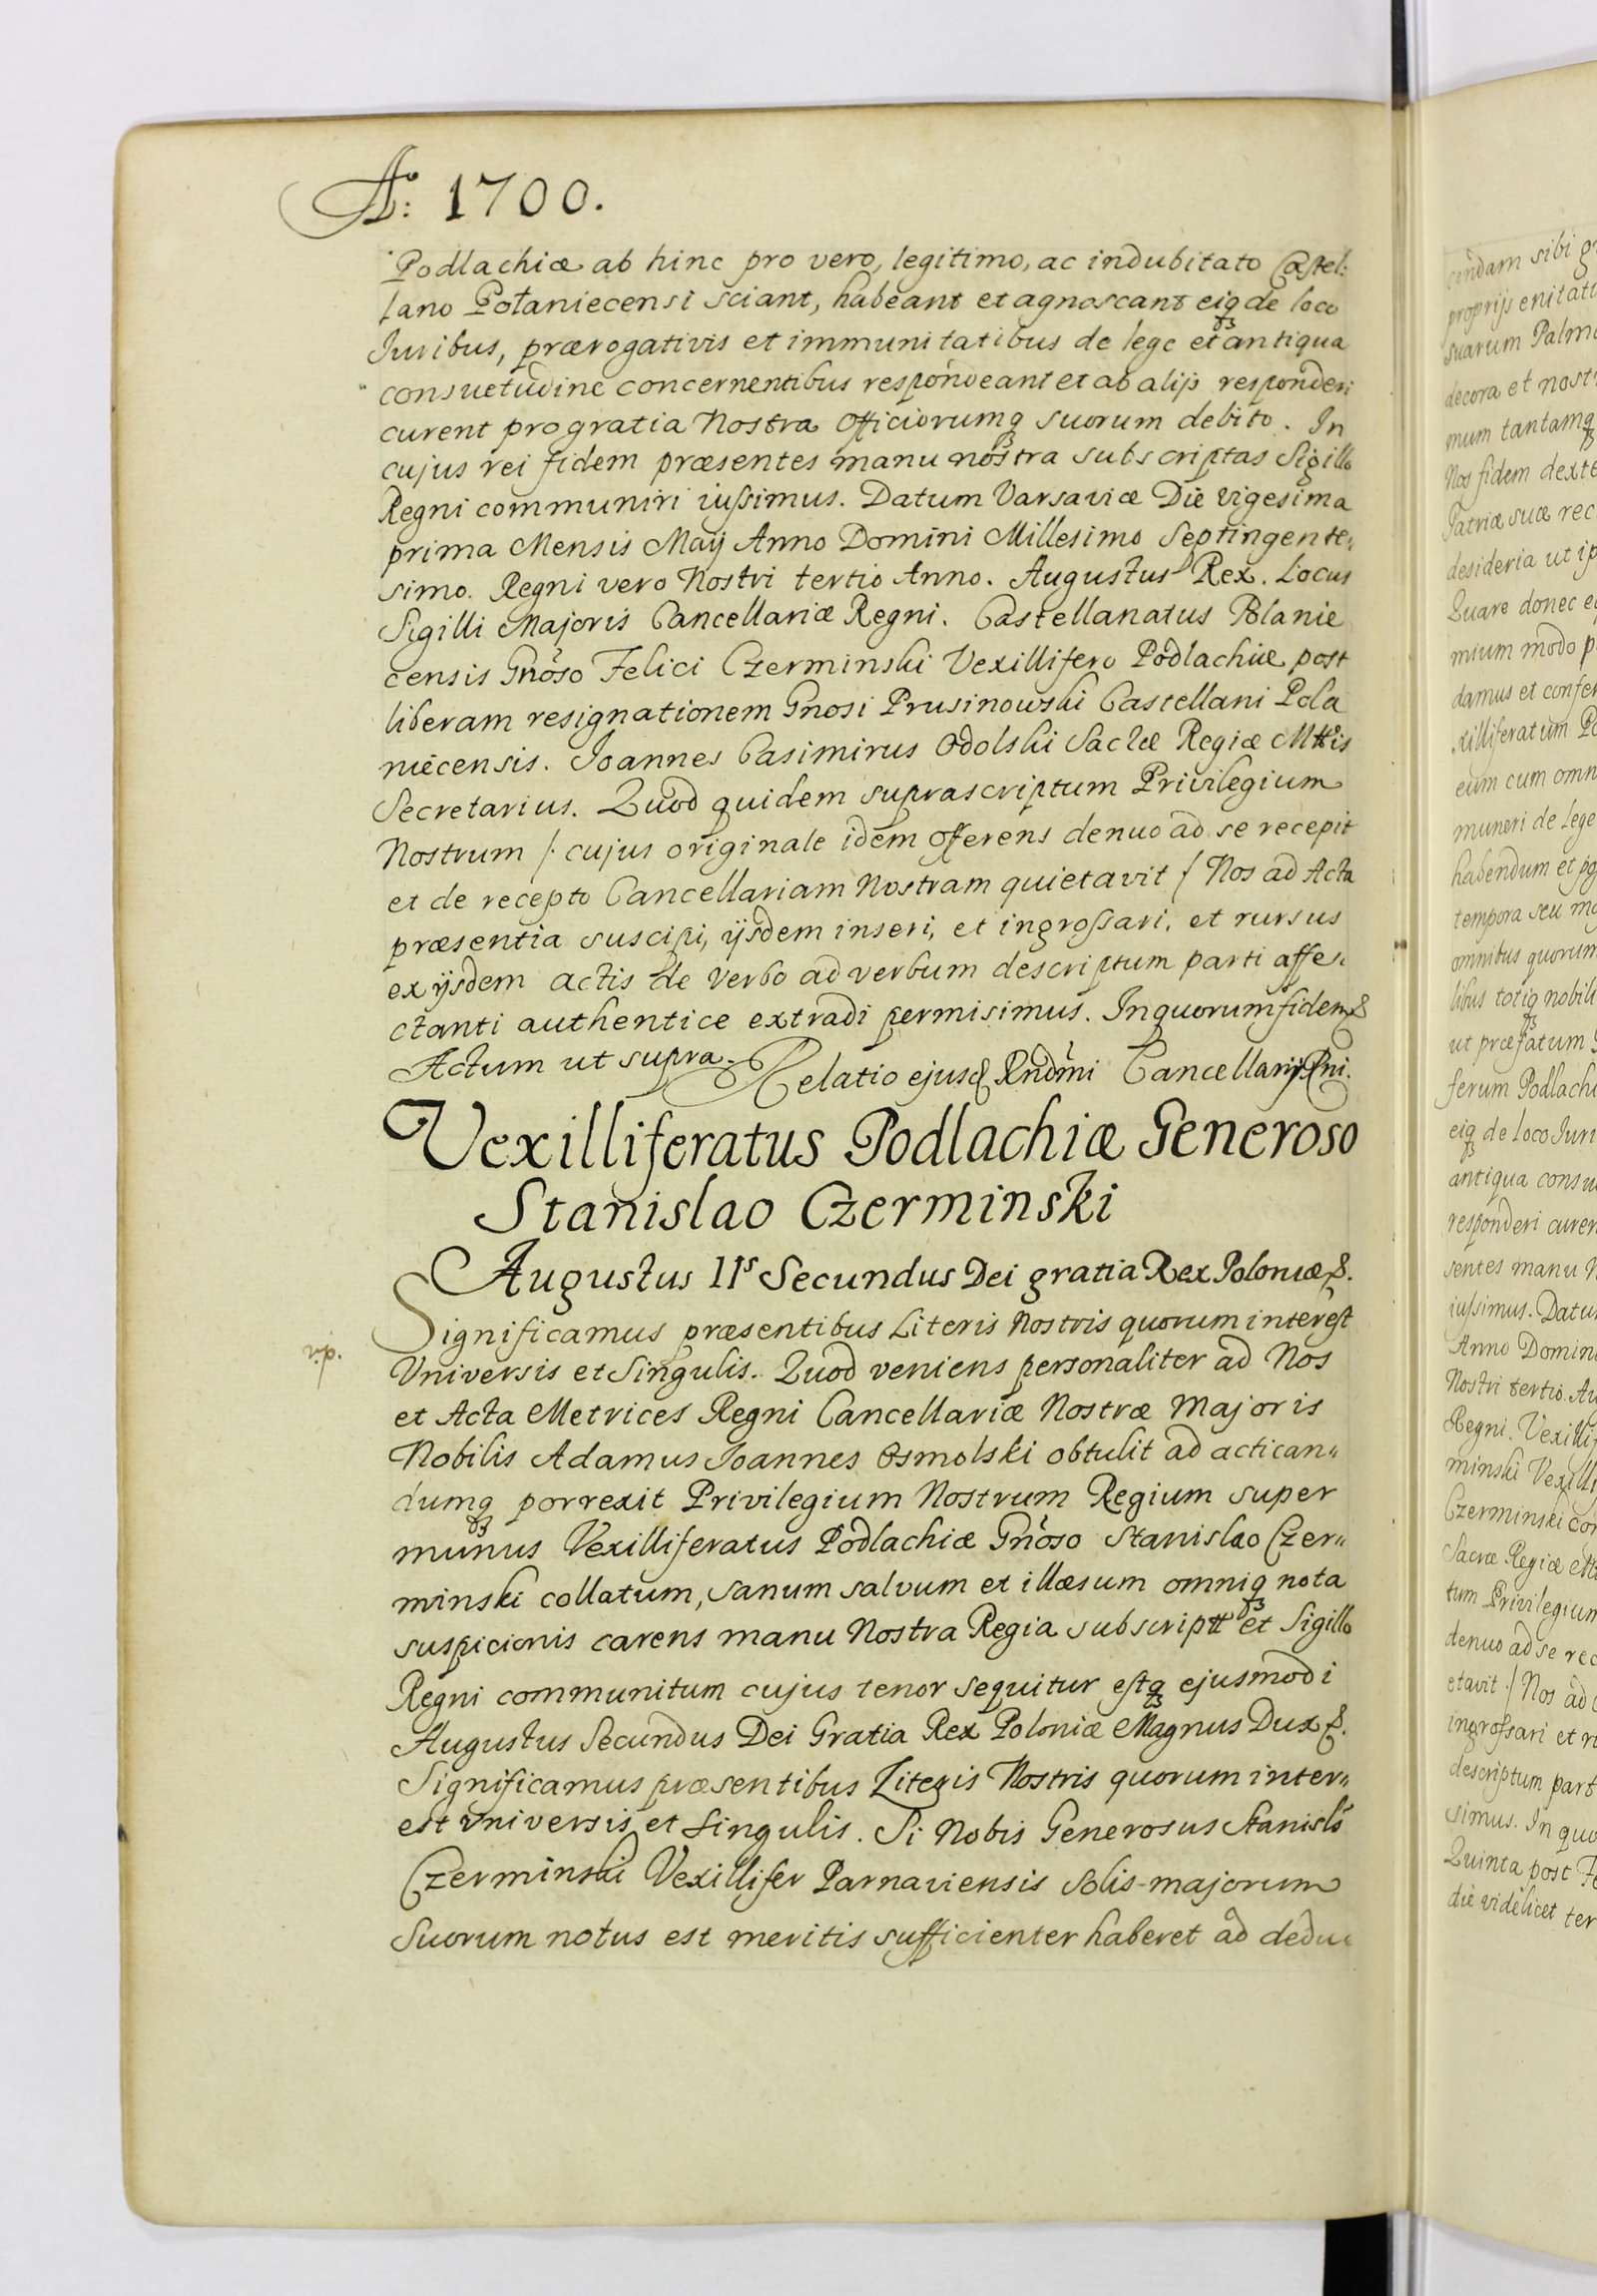 Ao: 1700.
Podlachiæ ab hinc pro vero, legitimo, ac indubitato Castel:
lano Połaniecensi sciant, habeant et agnoscant eiq3 de loco
Iuribus, prærogativis et immunitatibus de lege et antiqua
consuetudine concernentibus respondeant et ab alijs responderi
curent pro gratia Nostra Officiorumq3 suorum debito. In
cujus rei fidem præsentes manu nostra subscriptas Sigillo
Regni communiri iussimus. Datum Varsaviæ Die vigesima
prima Mensis Maij Anno Domini Millesimo Septingente„
simo. Regni vero Nostri tertio Anno. Augustus Rex. Locus
Sigilli Majoris Cancellariæ Regni. Castellanatus Polanie
censis Gnoso Felici Czerminski Vexillifero Podlachiæ post
liberam resignationem Gnosi Prusinowski Castellani Pola
niecensis. Ioannes Casimirus Odolski Sacræ Regiæ Mttis
Secretarius. Quod quidem suprascriptum Privilegium
Nostrum /. cujus originale idem offerens denuo ad se recepit
et de recepto Cancellariam Nostram quietavit / Nos ad Acta
præsentia suscipi, ijsdem inseri, et ingrossari, et rursus
ex ijsdem actis de verbo ad verbum descriptum parti affe„
ctanti authentice extradi permisimus. In quorum fidem &
Actum ut supra. Relatio ejusd Rndmi Cancellarij Rni.
Vexilliferatus Podlachiæ Generoso
Stanislao Czerminski
Augustus IIs Secundus Dei gratia Rex Poloniæ &.
Significamus præsentibus Literis Nostris quorum interest
v.p.
Vniversis et Singulis. Quod veniens personaliter ad Nos
et Acta Metrices Regni Cancellariæ Nostræ Majoris
Nobilis Adamus Ioannes Osmolski obtulit ad actican„
dumq3 porrexit Privilegium Nostrum Regium super
munus Vexilliferatus Podlachiæ Gnoso Stanislao Czer„
minski collatum, sanum salvum et illæsum omniq3 nota
suspicionis carens manu Nostra Regia subscriptt et Sigillo
Regni communitum cujus tenor sequitur estq3 ejusmodi
Augustus Secundus Dei Gratia Rex Poloniæ Magnus Dux &.
Significamus præsentibus Literis Nostris quorum inter„
est vniversis et singulis. Si Nobis Generosus Stanisls
Czerminski Vexillifer Parnaviensis solis majorum
Suorum notus est meritis sufficienter haberet ad dedu
cendam sibi
proprijs enitat
suarum Palm
decora et nost
mum tantamq3
Nos fidem dexte
Patriæ suæ rec
desideria ut ip
Quare donec e
mium modo p
damus et confer
xilliferatum Po
eum cum omn
muneri de Lege
habendum et po
tempora seu mo
omnibus quorum
libus totiq3 nobili
ut præfatum G
ferum Podlachi
eiq3 de loco Iuri
antiqua consu
responderi curen
sentes manu N
iussimus. Datu
Anno Domin
Nostri tertio. Au
Regni. Vexillif
minski Vexilli
Czerminski co
Sacræ Regiæ Mt
tum Privilegium
denuo ad se rec
etavit / Nos ad
ingrossari et r
descriptum part
simus. In quo
Quinta post Fe
die videlicet ter